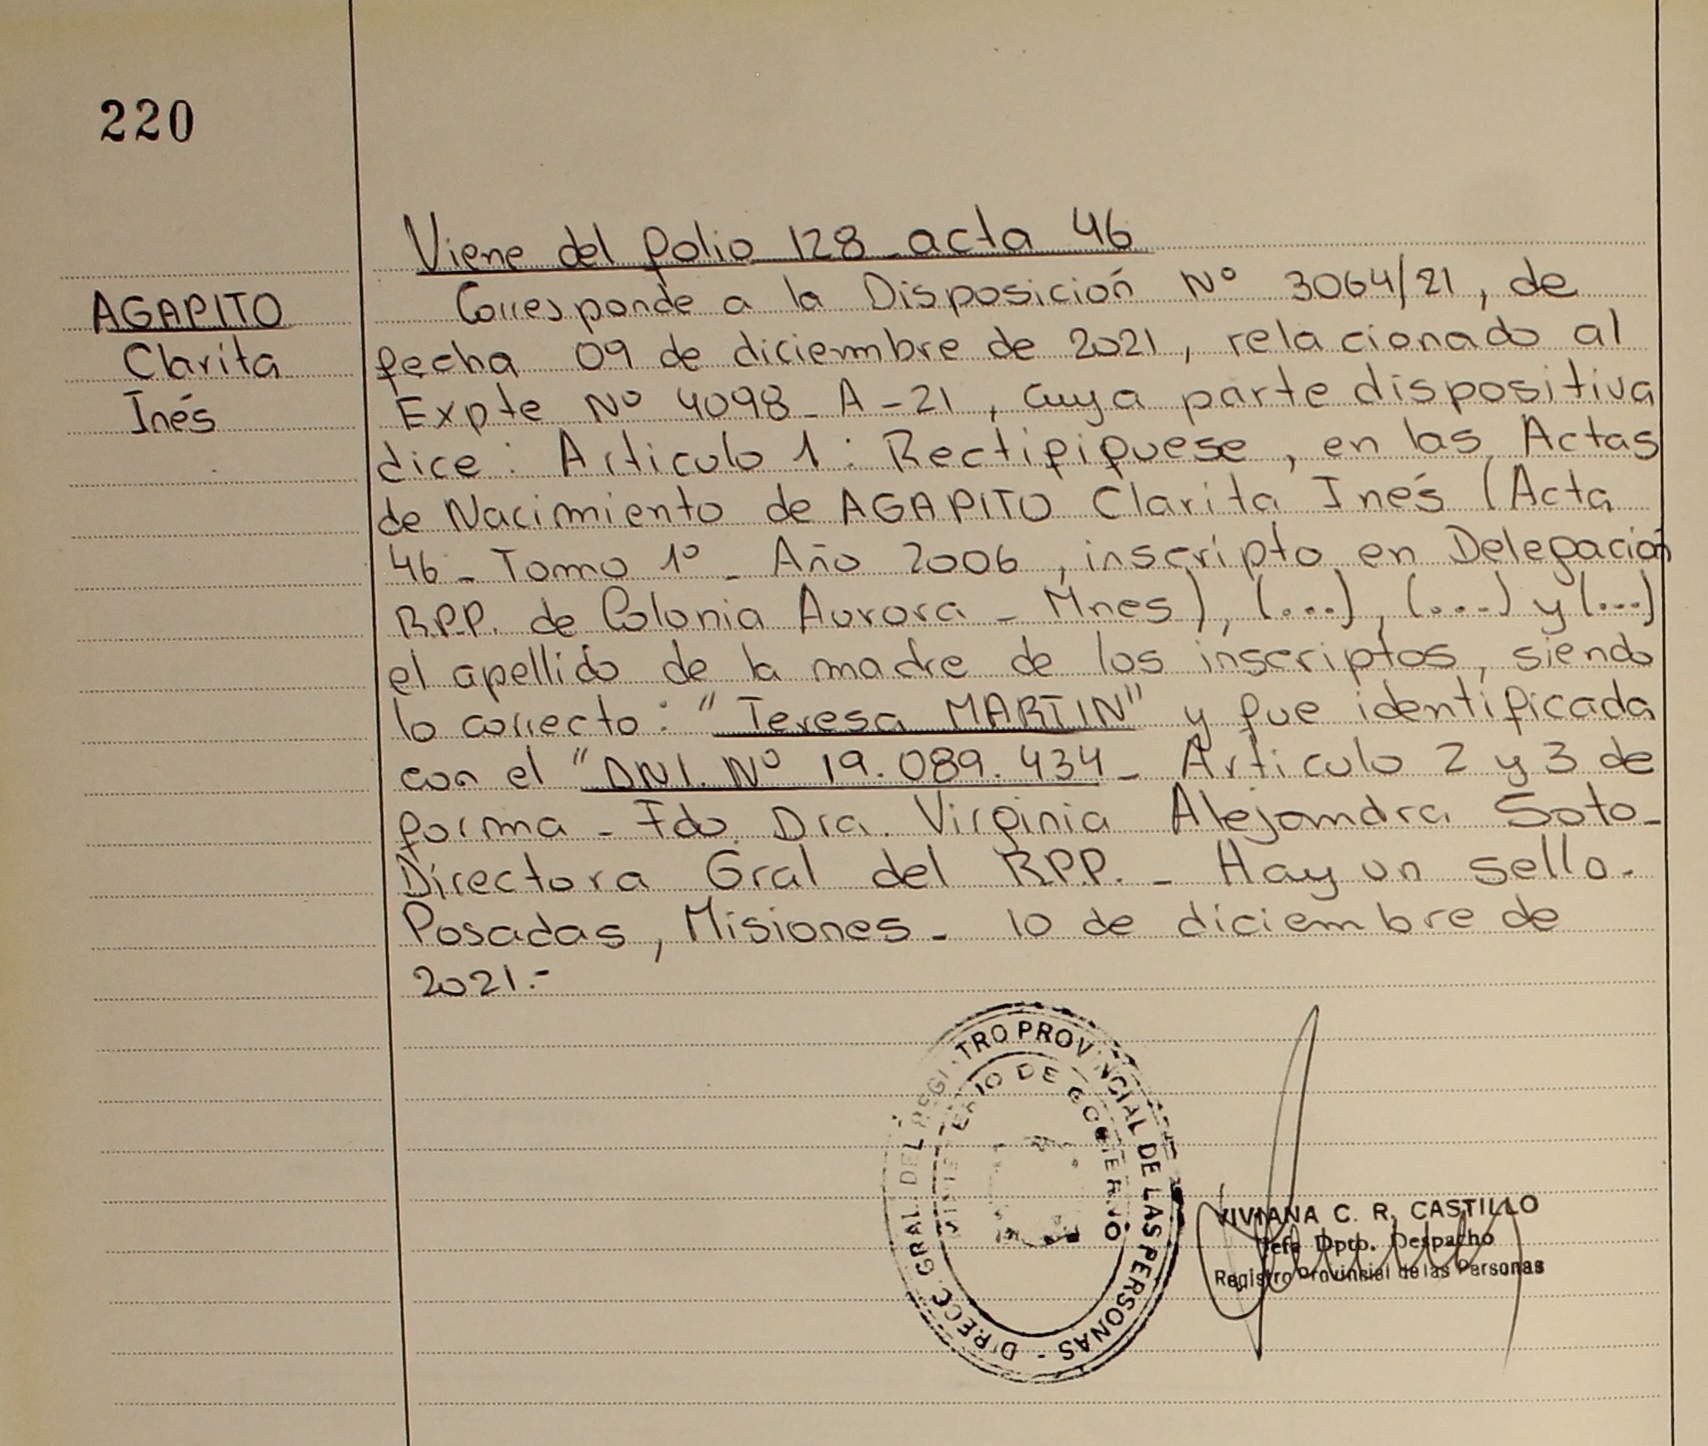 220
Viene del folio 128 acta 46
AGAPITO
Clarita
Inés
Corresponde a la Disposición Nº 3064/21, de
fecha 09 de diciembre de 2021, relacionado al
Expte Nº 4098-A-21, cuya parte dispositiva
dice: Articulo 1: Rectifiquese, en las Actas
de Nacimiento de AGAPITO Clarita Inés (Acta
46 - Tomo 1º - Año 2006, inscripto en Delegación
R.P.P. de Colonia Aurora - Mnes), (...), (...) y (...)
el apellido de la madre de los inscriptos, siendo
lo correcto: "Teresa MARTIN" y fue identificada
con el "DNI. Nº 19.089.434 - Articulo 2 y 3 de
forma - Fdo. Dra. Virginia Alejandra Soto -
Directora Gral del R.P.P. - Hay un sello.
Posadas, Misiones - 10 de diciembre de
2021.-
DIRECC. GRAL. DEL REGISTRO PROVINCIAL DE LAS PERSONAS -
MINISTERIO DE GOBIERNO
VIVIANA C. R. CASTILLO
Jefe Dpto. Despacho
Registro Provincial de las Personas